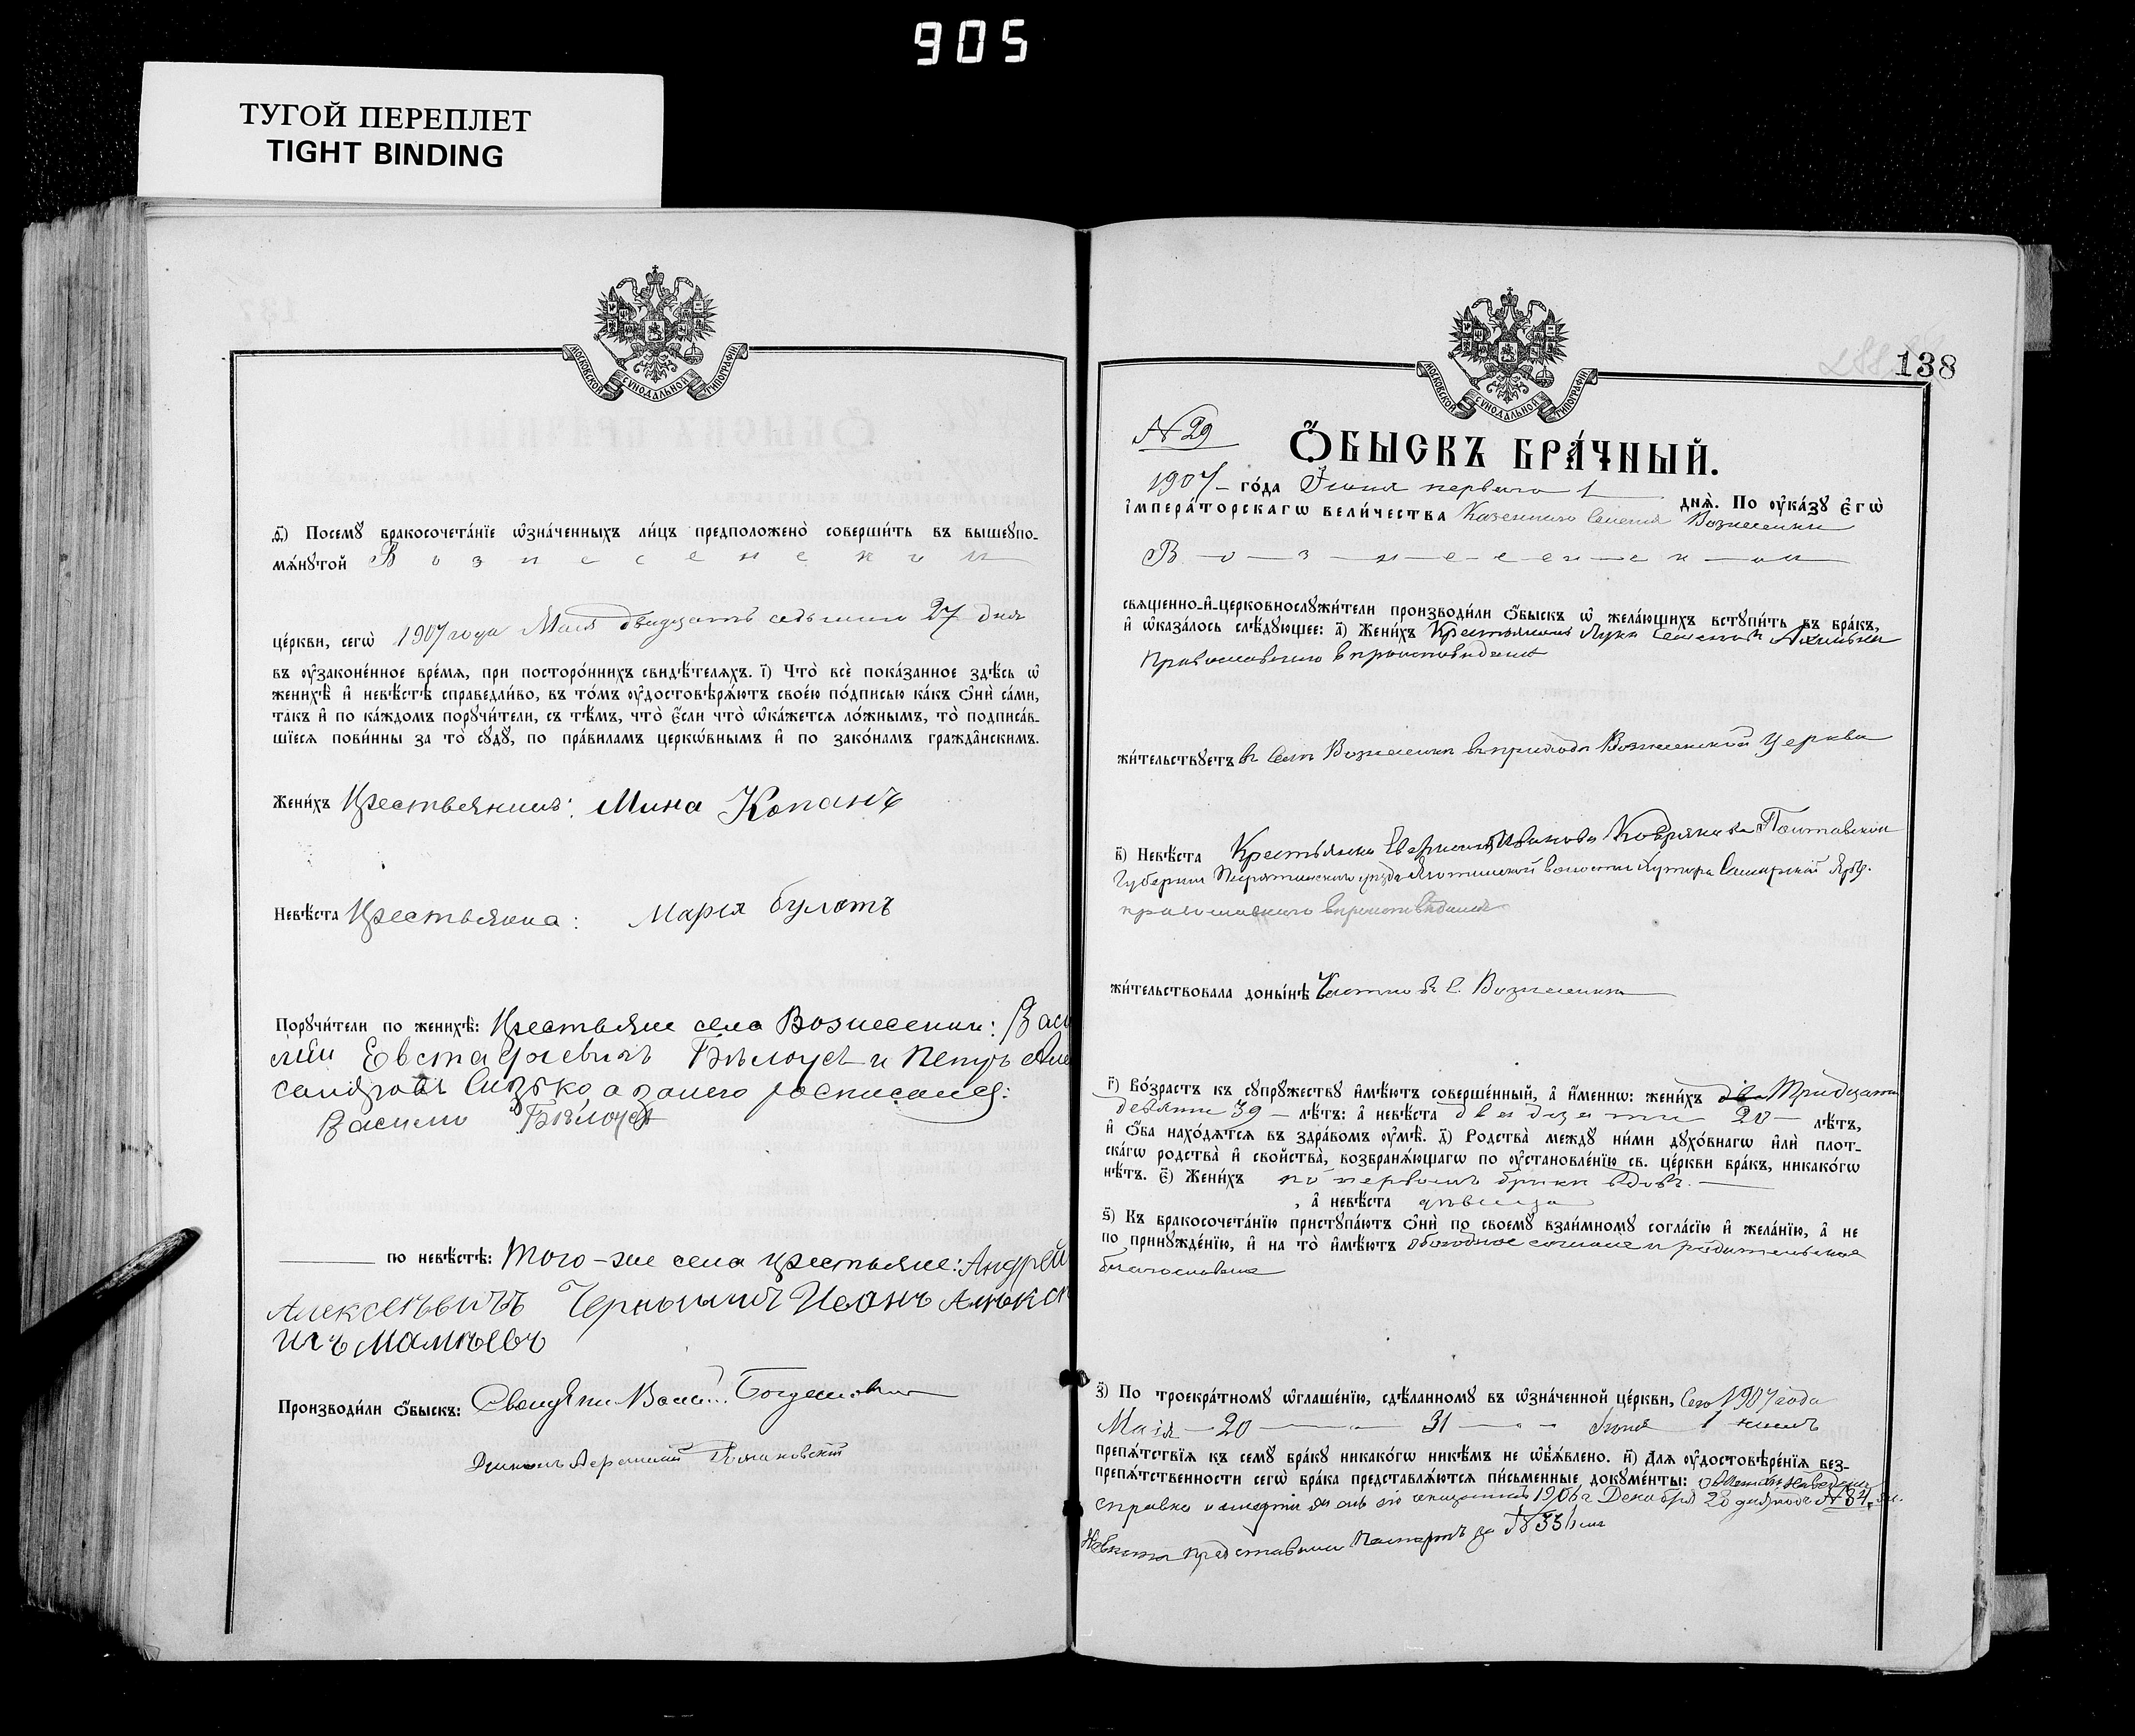 905
ТУГОЙ ПЕРЕПЛЕТ
TIGHT BINDING
МОСКОВСКОЙ СѴНОДАЛЬНОЙ ТИПОГРАФІИ
ѳ҃) Посемꙋ̀ бракосочета́нїе ѡ҆зна́ченныхъ ли́цъ предположено̀ соверши́ть въ вышеꙋпо-
мѧ́нꙋтой Вознесенском
це́ркви, сегѡ̀ 1907 года Маія двадцать седьмого 27 дня
въ ᲂу҆зако́ненное вре́мѧ, при посторо́ннихъ свидѣ́телѧхъ. і҃) Что̀ всѐ пока́занное здѣ́сь ѡ҆
женихѣ̀ и҆ невѣ́стѣ справедли́во, въ то́мъ ᲂу҆достовѣрѧ́ютъ свое́ю по́дписью ка́къ ѻ҆нѝ са́ми,
та́къ и҆ по ка́ждомъ порꙋчи́тели, съ тѣ́мъ, что̀ є҆́сли что̀ ѡ҆ка́жетсѧ ло́жнымъ, то̀ подписа́в-
шїесѧ пови́нны за то̀ сꙋдꙋ̀, по пра́виламъ церкѡ́внымъ и҆ по зако́намъ гражда̂нскимъ.
Жени́хъ Крестьянинъ: Мина Копанъ
Невѣ́ста Крестьянка: Марія булатъ
Порꙋчи́тели по женихѣ̀: Крестьяне села Вознесенки: Васи
лій Евстафіевичъ Бѣлоусъ и Петръ Але
сандровъ а занего росписался:
Василій Бѣлоусъ
по невѣ́стѣ: Того-же села крестьяне: Андрей
Алексѣевичъ Иванъ Алекс
ичъ Мамѣевъ
Производи́ли ѻ҆́быскъ: Священникъ
Діаконъ
МОСКОВСКОЙ СѴНОДАЛЬНОЙ ТИПОГРАФІИ
138
№ 29
Ѻ҆́БЫСКЪ БРА́ЧНЫЙ.
1907 го́да Іюня перваго 1 днѧ̀. По ᲂу҆ка́зꙋ є҆гѡ̀
і҆мпера́торскагѡ вели́чества Казеннаго Селенія Вознесенки
Вознесенском
свѧще́нно-и҆-церковнослꙋжи́тели производи́ли ѻ҆́быскъ ѡ҆ жела́ющихъ встꙋпи́ть въ бра́къ,
и҆ ѡ҆каза́лось слѣ́дꙋющее: а҃) Жени́хъ Крестьянинъ Лука
Православнаго вѣроисповѣданія
жи́тельствꙋетъ въ селѣ Вознесенки въ приходѣ Вознесенской Церкви
в҃) Невѣ́ста Крестьянка Полтавской
Губерніи Пирятинскаго уѣзда волости Хутора
православнаго вѣроисповѣданія
жи́тельствовала доны́нѣ въ с. Вознесенки
г҃) Во́зрастъ къ сꙋпрꙋ́жествꙋ и҆мѣ́ютъ соверше́нный, а҆ и҆́меннѡ: жени́хъ Тридцати
девяти 39 лѣ́тъ: а҆ невѣ́ста двадцати 20 лѣ́тъ,
и҆ ѻ҆́ба нахо́дѧтсѧ въ здра́вомъ ᲂу҆мѣ̀. д҃) Родства̀ междꙋ̀ ни́ми дꙋхо́внагѡ и҆лѝ плот-
ска́гѡ родства̀ и҆ свойства̀, возбранѧ́ющагѡ по ᲂу҆становле́нїю св. це́ркви бра́къ, никако́гѡ
нѣ́тъ. є҃) Жени́хъ по первомъ бракѣ вдовъ.
, а҆ невѣ́ста дѣвица
ѕ҃) Къ бракосочета́нїю пристꙋпа́ютъ ѻ҆нѝ по своемꙋ̀ взаи́мномꙋ согла́сїю и҆ жела́нїю, а҆ не
по принꙋжде́нїю, и҆ на то̀ и҆мѣ́ютъ обоюдное согласіе и родительское
благословеніе
з҃) По троекра́тномꙋ ѡ҆глаше́нїю, сдѣ́ланномꙋ въ ѡ҆зна́ченной це́ркви, Сего 1907 года
Маія 20 31 Іюня 1 числъ
препѧ́тствїѧ къ семꙋ̀ бра́кꙋ никако́гѡ никѣ́мъ не ѡ҆б̾ѧ́влено. и҃) Длѧ ᲂу҆достовѣре́нїѧ без-
препѧ́тственности сегѡ̀ бра́ка представлѧ́ютсѧ пи́сьменные докꙋме́нты:
справка о смерти 1906 г Декабря 28 № 84
Невѣста представила паспортъ за № 331